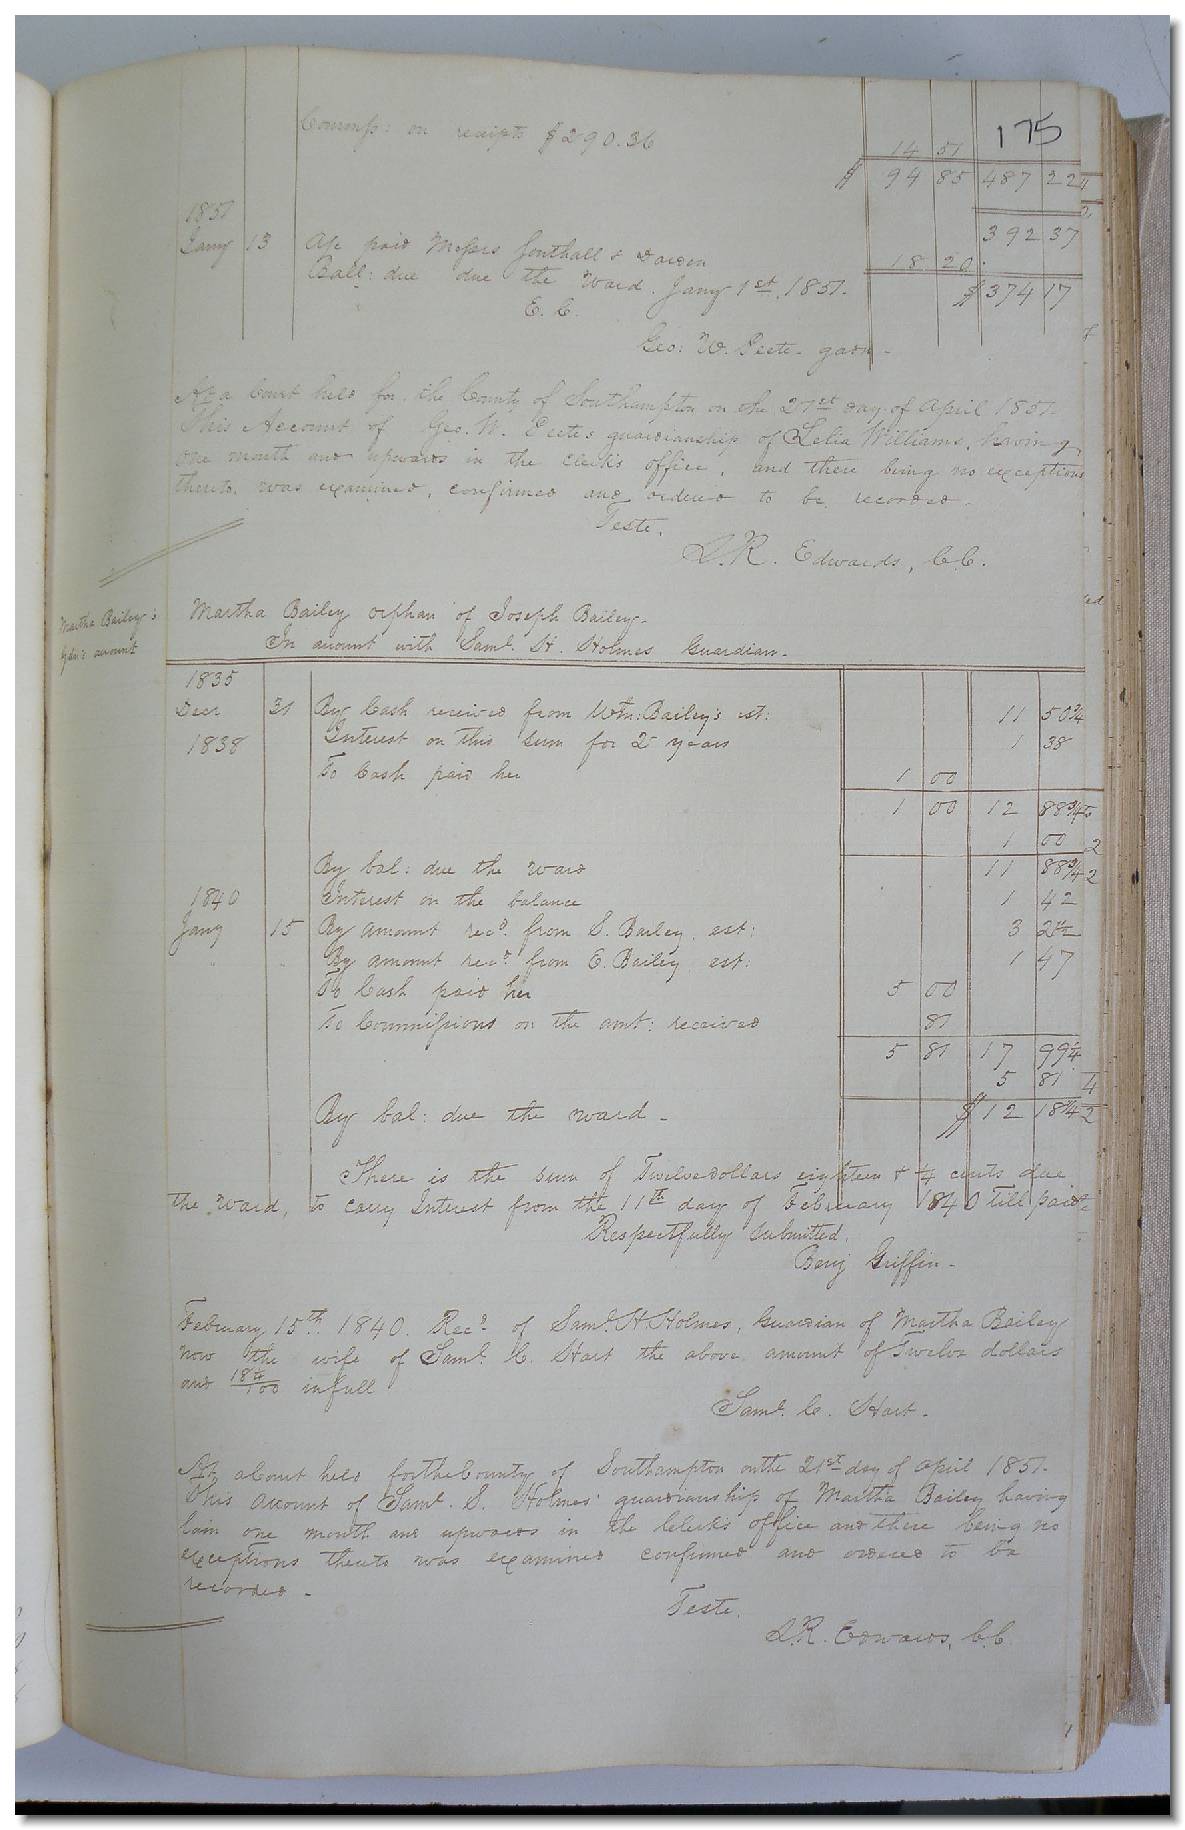 175
Commiss: on receipts $290.36 14 51
$ 94 85 487 22
1851 392 37
Jany 13 A/c paid Messrs Southall & 18 20
Ball: due due the Ward. Jany 1st, 1851. $374 17
E. C.
Geo: W. Peete - gdn -
At a Court held for the County of Southampton on the 21st day of April 1851.
This Account of Geo. W. Peete's guardianship of Lelia Williams, having
one month and upwards in the clerk's office, and there being no exceptions
thereto, was examined, confirmed and ordered to be recorded.
Teste,
L.R. Edwards, C.C.
Martha Bailey's
Gdn's account
Martha Bailey orphan of Joseph Bailey.
In account with Saml. H. Holmes Guardian.
1835
Decr 31 By Cash received from Wm: Bailey's est: 11 50 3/4
1838 Interest on this sum for 2 years 1 38
To Cash paid her 1 00
1 00 12 88 3/4
1 00
By bal: due the ward 11 88 3/4
1840 Interest on the balance 1 42
Jany 15 By amount recd. from S. Bailey est: 3 21 1/2
" " By amount recd. from E. Bailey est: 1 47
To Cash paid her 5 00
To Commissions on the amt: received 81
5 81 17 99 1/4
5 81
By bal: due the ward - $12 18 1/4
There is the sum of Twelve dollars eighteen & 1/4 cents due
the Ward, to carry Interest from the 11th day of February 1840 till paid
Respectfully submitted.
Benj Griffin -
February 15th. 1840. Recd. of Saml. H. Holmes, Guardian of Martha Bailey
now the wife of Saml. C. Hart the above amount of Twelve dollars
and 18 1/4/100 in full
Saml. C. Hart.
At a Court held for the County of Southampton on the 21st day of April 1851.
This account of Saml. S. Holmes' guardianship of Martha Bailey having
lain one month and upwards in the Clerk's office and there being no
exceptions thereto was examined confirmed and ordered to be
recorded -
Teste,
L.R. Edwards, C.C.